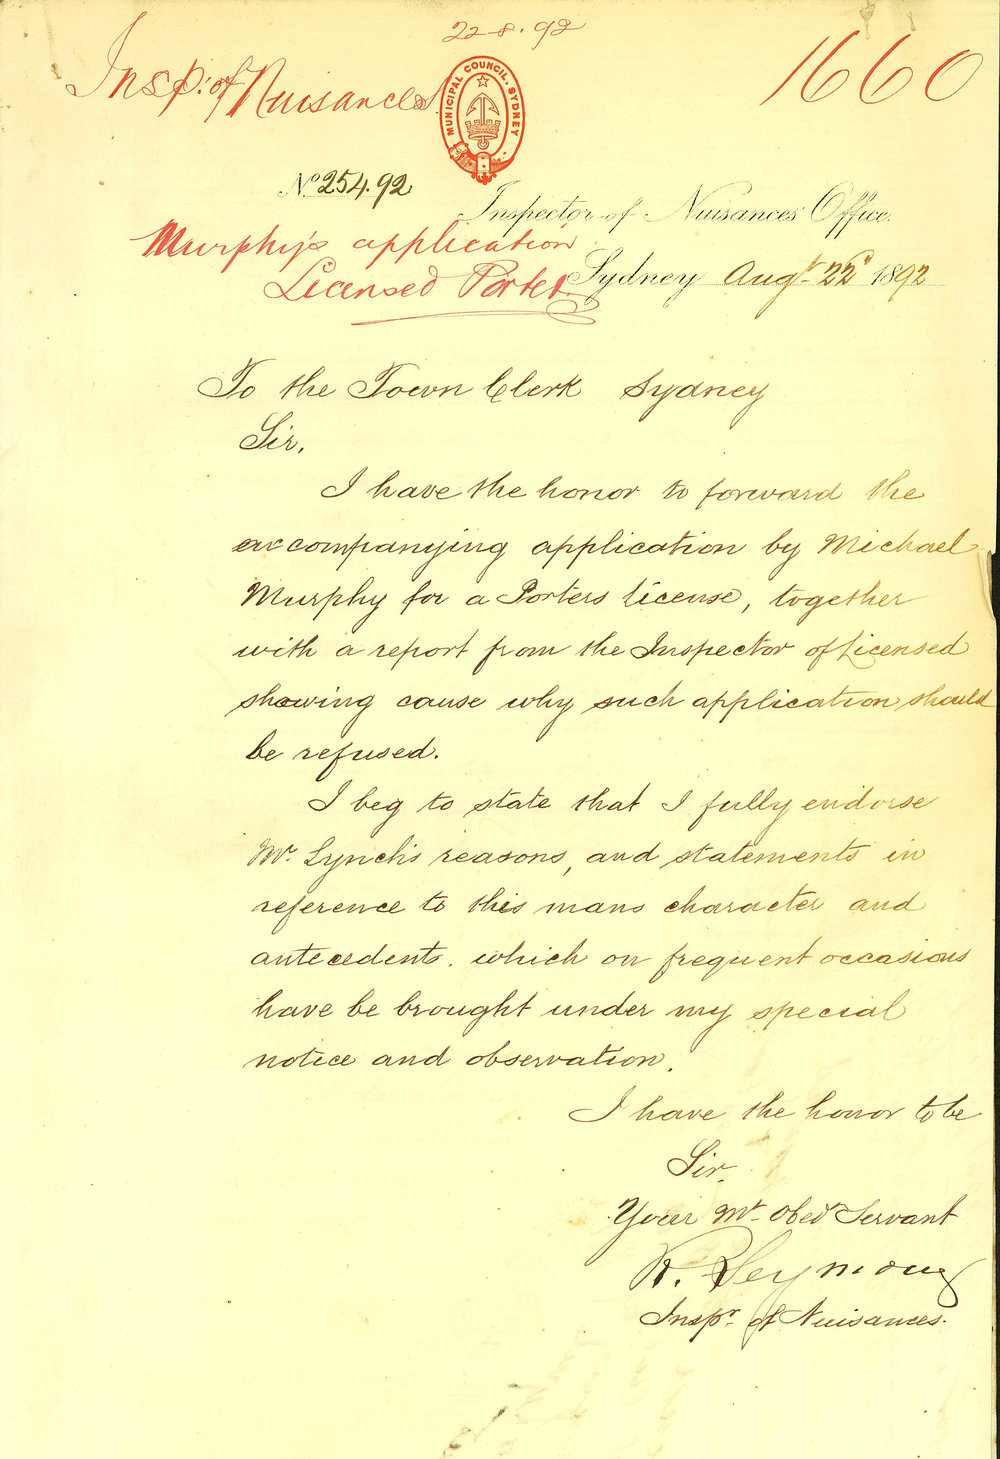 22.8.92
Insp: of Nuisances
1660
MUNICIPAL COUNCIL. SYDNEY
No 254.92
Inspector of Nuisances Office.
Murphy's application
Licensed Porter
Sydney Augt 22d 1892
To the Town Clerk Sydney
Sir,
I have the honor to forward the
accompanying application by Michael
Murphy for a Porters license, together
with a report from the Inspector of Licensed
showing cause why such application should
be refused.
I beg to state that I fully endorse
Mr. Lynch's reasons, and statements in
reference to this mans character and
antecedents. which on frequent occasions
have be brought under my special
notice and observation.
I have the honor to be
Sir,
Your Mt Obed Servant
R. Seymour
Inspr of Nuisances.